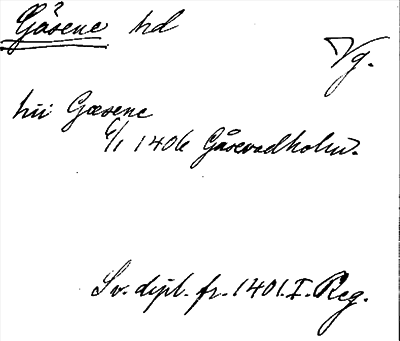 Gåsene hd
Vg.
hū Gæsene
6/1 1406 Gåsevadholm.
Sv. dipl. fr. 1401. I. Reg.